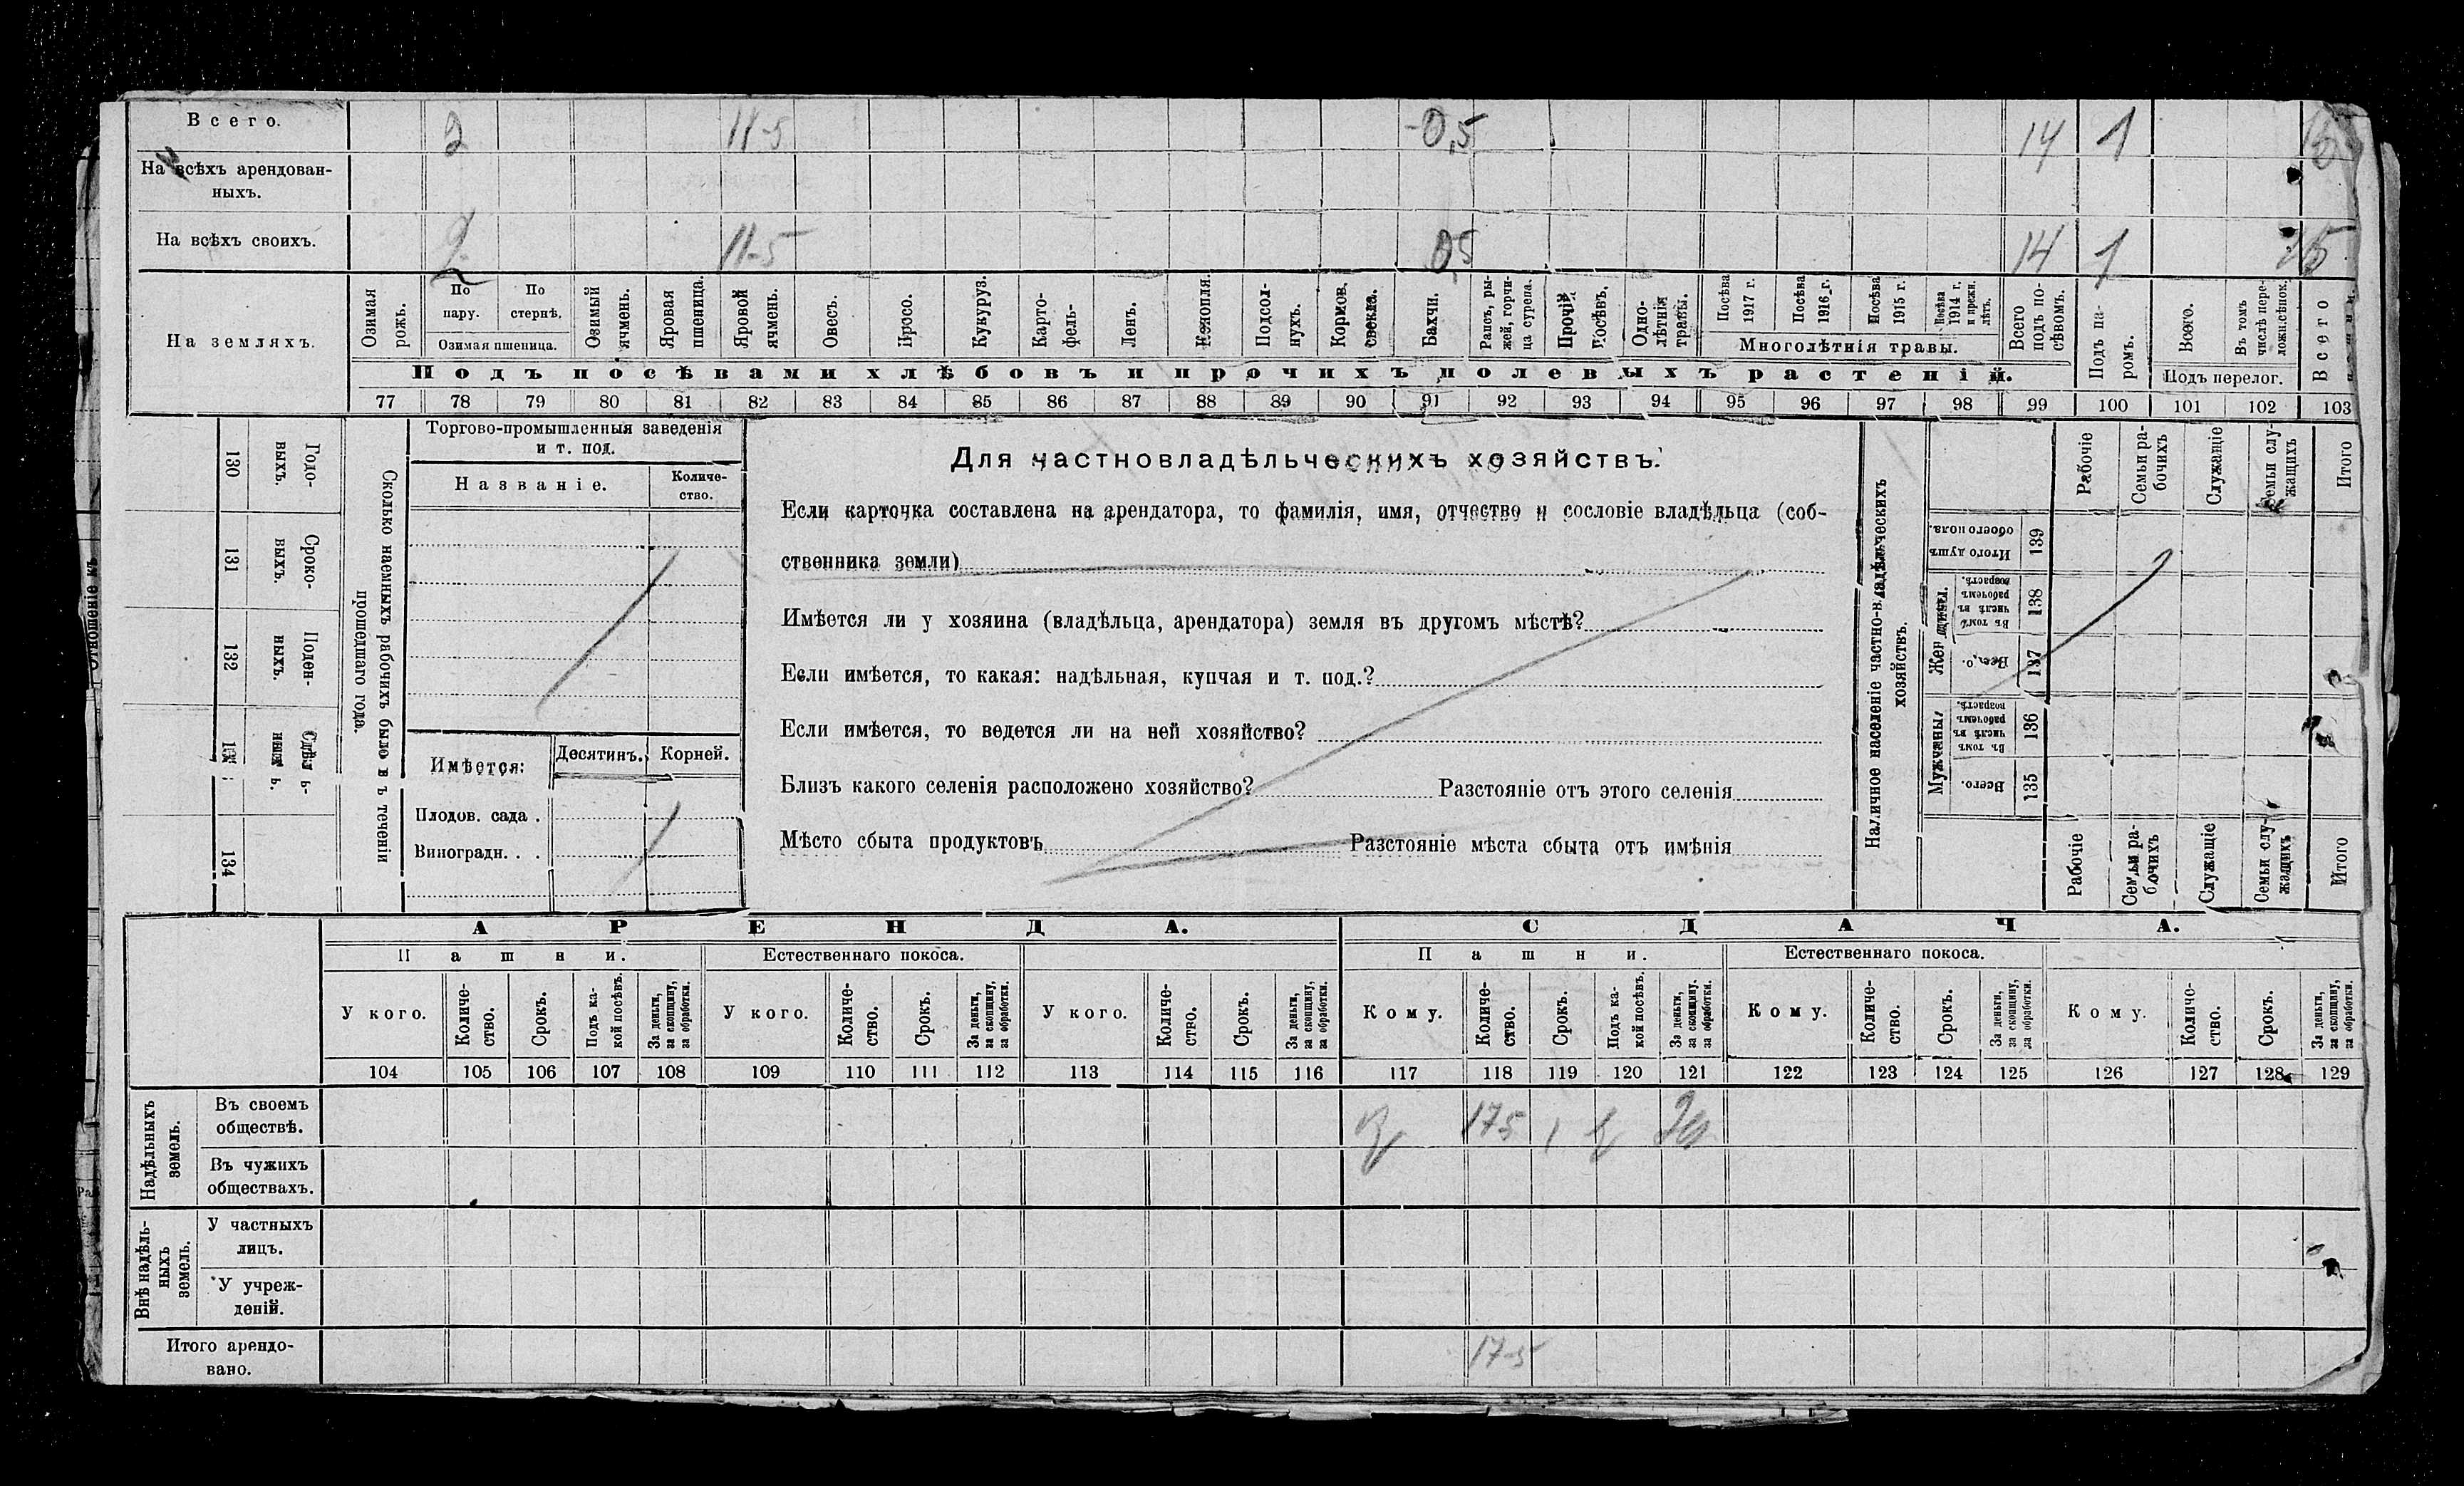 Всего. 2 11-5 0,5 14 1
На всѣхъ арендован-
ныхъ.
На всѣхъ своихъ. 2 11-5 0,5 14 1 15
На земляхъ.
Озимая рожь.
По пару.
По стернѣ.
Озимая пшеница.
Озимый ячмень.
Яровая пшеница.
Яровой ячмень.
Овесъ.
Просо.
Кукуруз.
Карто-
фель.
Ленъ.
Конопля.
Подсол-
нухъ.
Кормов.
свекла.
Бахчи.
Рапсъ, ры-
жей, горчи-
ца сурепа.
Прочій
посѣвъ.
Одно-
лѣтнія
травы.
Посѣва
1917 г.
Посѣва
1916 г.
Посѣва
1915 г.
Посѣва
1914 г.
и прежн.
лѣтъ.
Многолѣтнія травы.
Всего
подъ по-
сѣвомъ.
Подъ па-
ромъ.
Всего.
Въ томъ
числѣ пере-
ложн. сѣнок.
Подъ перелог.
Всего
Подъ посѣвами хлѣбовъ и прочихъ полевыхъ растеній.
77 78 79 80 81 82 83 84 85 86 87 88 89 90 91 92 93 94 95 96 97 98 99 100 101 102 103
130 Годо-
выхъ.
131 Сроко-
выхъ.
132 Поден-
ныхъ.
Сдѣль-
ныхъ.
134
Сколько наемныхъ рабочихъ было въ теченіи
прошедшаго года.
Торгово-промышленныя заведенія
и т. под.
Названіе.
Количе-
ство.
Имѣется:
Десятинъ.
Корней.
Плодов. сада .
Виноградн. . .
Для частновладѣльческихъ хозяйствъ.
Если карточка составлена на арендатора, то фамилія, имя, отчество и сословіе владѣльца (соб-
ственника земли)
Имѣется ли у хозяина (владѣльца, арендатора) земля въ другомъ мѣстѣ?
Если имѣется, то какая: надѣльная, купчая и т. под.?
Если имѣется, то ведется ли на ней хозяйство?
Близъ какого селенія расположено хозяйство? Разстояніе отъ этого селенія
Мѣсто сбыта продуктовъ Разстояніе мѣста сбыта отъ имѣнія
Наличное населеніе частно-владѣльческихъ
хозяйствъ.
Рабочіе
Семьи ра-
бочихъ
Служащіе
Семьи слу-
жащихъ
Итого
Итого душъ
обоего пола.
139
Женщины.
Въ томъ
числѣ въ
рабочемъ
возрастѣ.
138
Всего.
137
Мужчины.
Въ томъ
числѣ въ
рабочемъ
возрастѣ.
136
Всего.
135
Рабочіе
Семьи ра-
бочихъ
Служащіе
Семьи слу-
жащихъ
Итого
АРЕНДА. СДАЧА.
Пашни. Естественнаго покоса. Пашни. Естественнаго покоса.
У кого.
Количе-
ство.
Срокъ.
Подъ ка-
кой посѣвъ.
За деньги,
за скопщину,
за обработки.
У кого.
Количе-
ство.
Срокъ.
За деньги,
за скопщину,
за обработки.
У кого.
Количе-
ство.
Срокъ.
За деньги,
за скопщину,
за обработки.
Кому.
Количе-
ство.
Срокъ.
Подъ ка-
кой посѣвъ.
За деньги,
за скопщину.
за обработки.
Кому.
Количе-
ство.
Срокъ.
За деньги,
за скопщину,
за обработки.
Кому.
Количе-
ство.
Срокъ.
За деньги,
за скопщину,
за обработки.
104 105 106 107 108 109 110 111 112 113 114 115 116 117 118 119 120 121 122 123 124 125 126 127 128 129
Надѣльныхъ
земель.
Въ своемъ
обществѣ. 175 1
Въ чужихъ
обществахъ.
Внѣ надѣль-
ныхъ
земель.
У частныхъ
лицъ.
У учреж-
деній.
Итого арендо-
вано. 17-5
Отношеніе къ